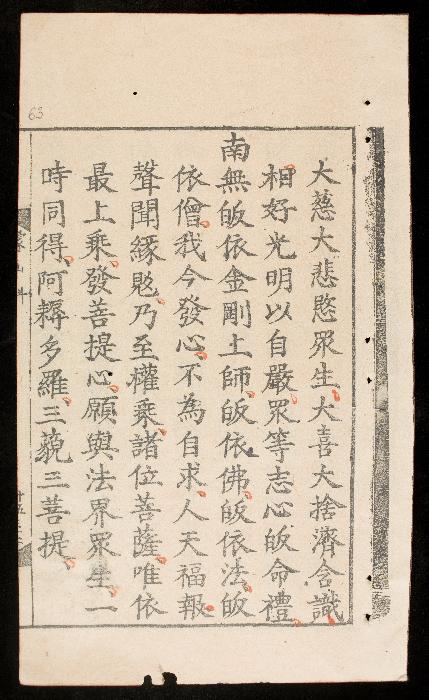 大慈大悲愍眾生大喜大捨濟含識
相好光明以自嚴眾等志心皈命禮
南無皈依金剛上師皈依佛皈依法皈
依僧我今發心不為自求人天福報
聲聞緣覺乃至權乘諸位菩薩唯依
最上乘發菩提心願與法界眾生一
時同得阿耨多羅三藐三菩提
63